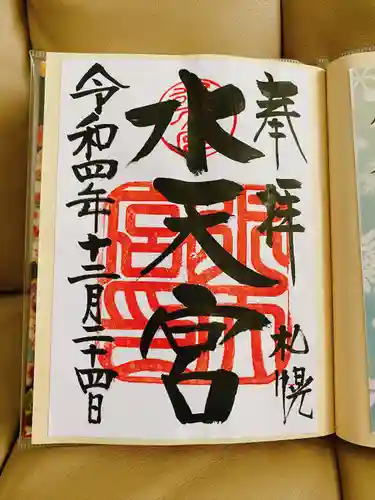 奉拝
札幌
水天宮
令和四年十二月二十四日